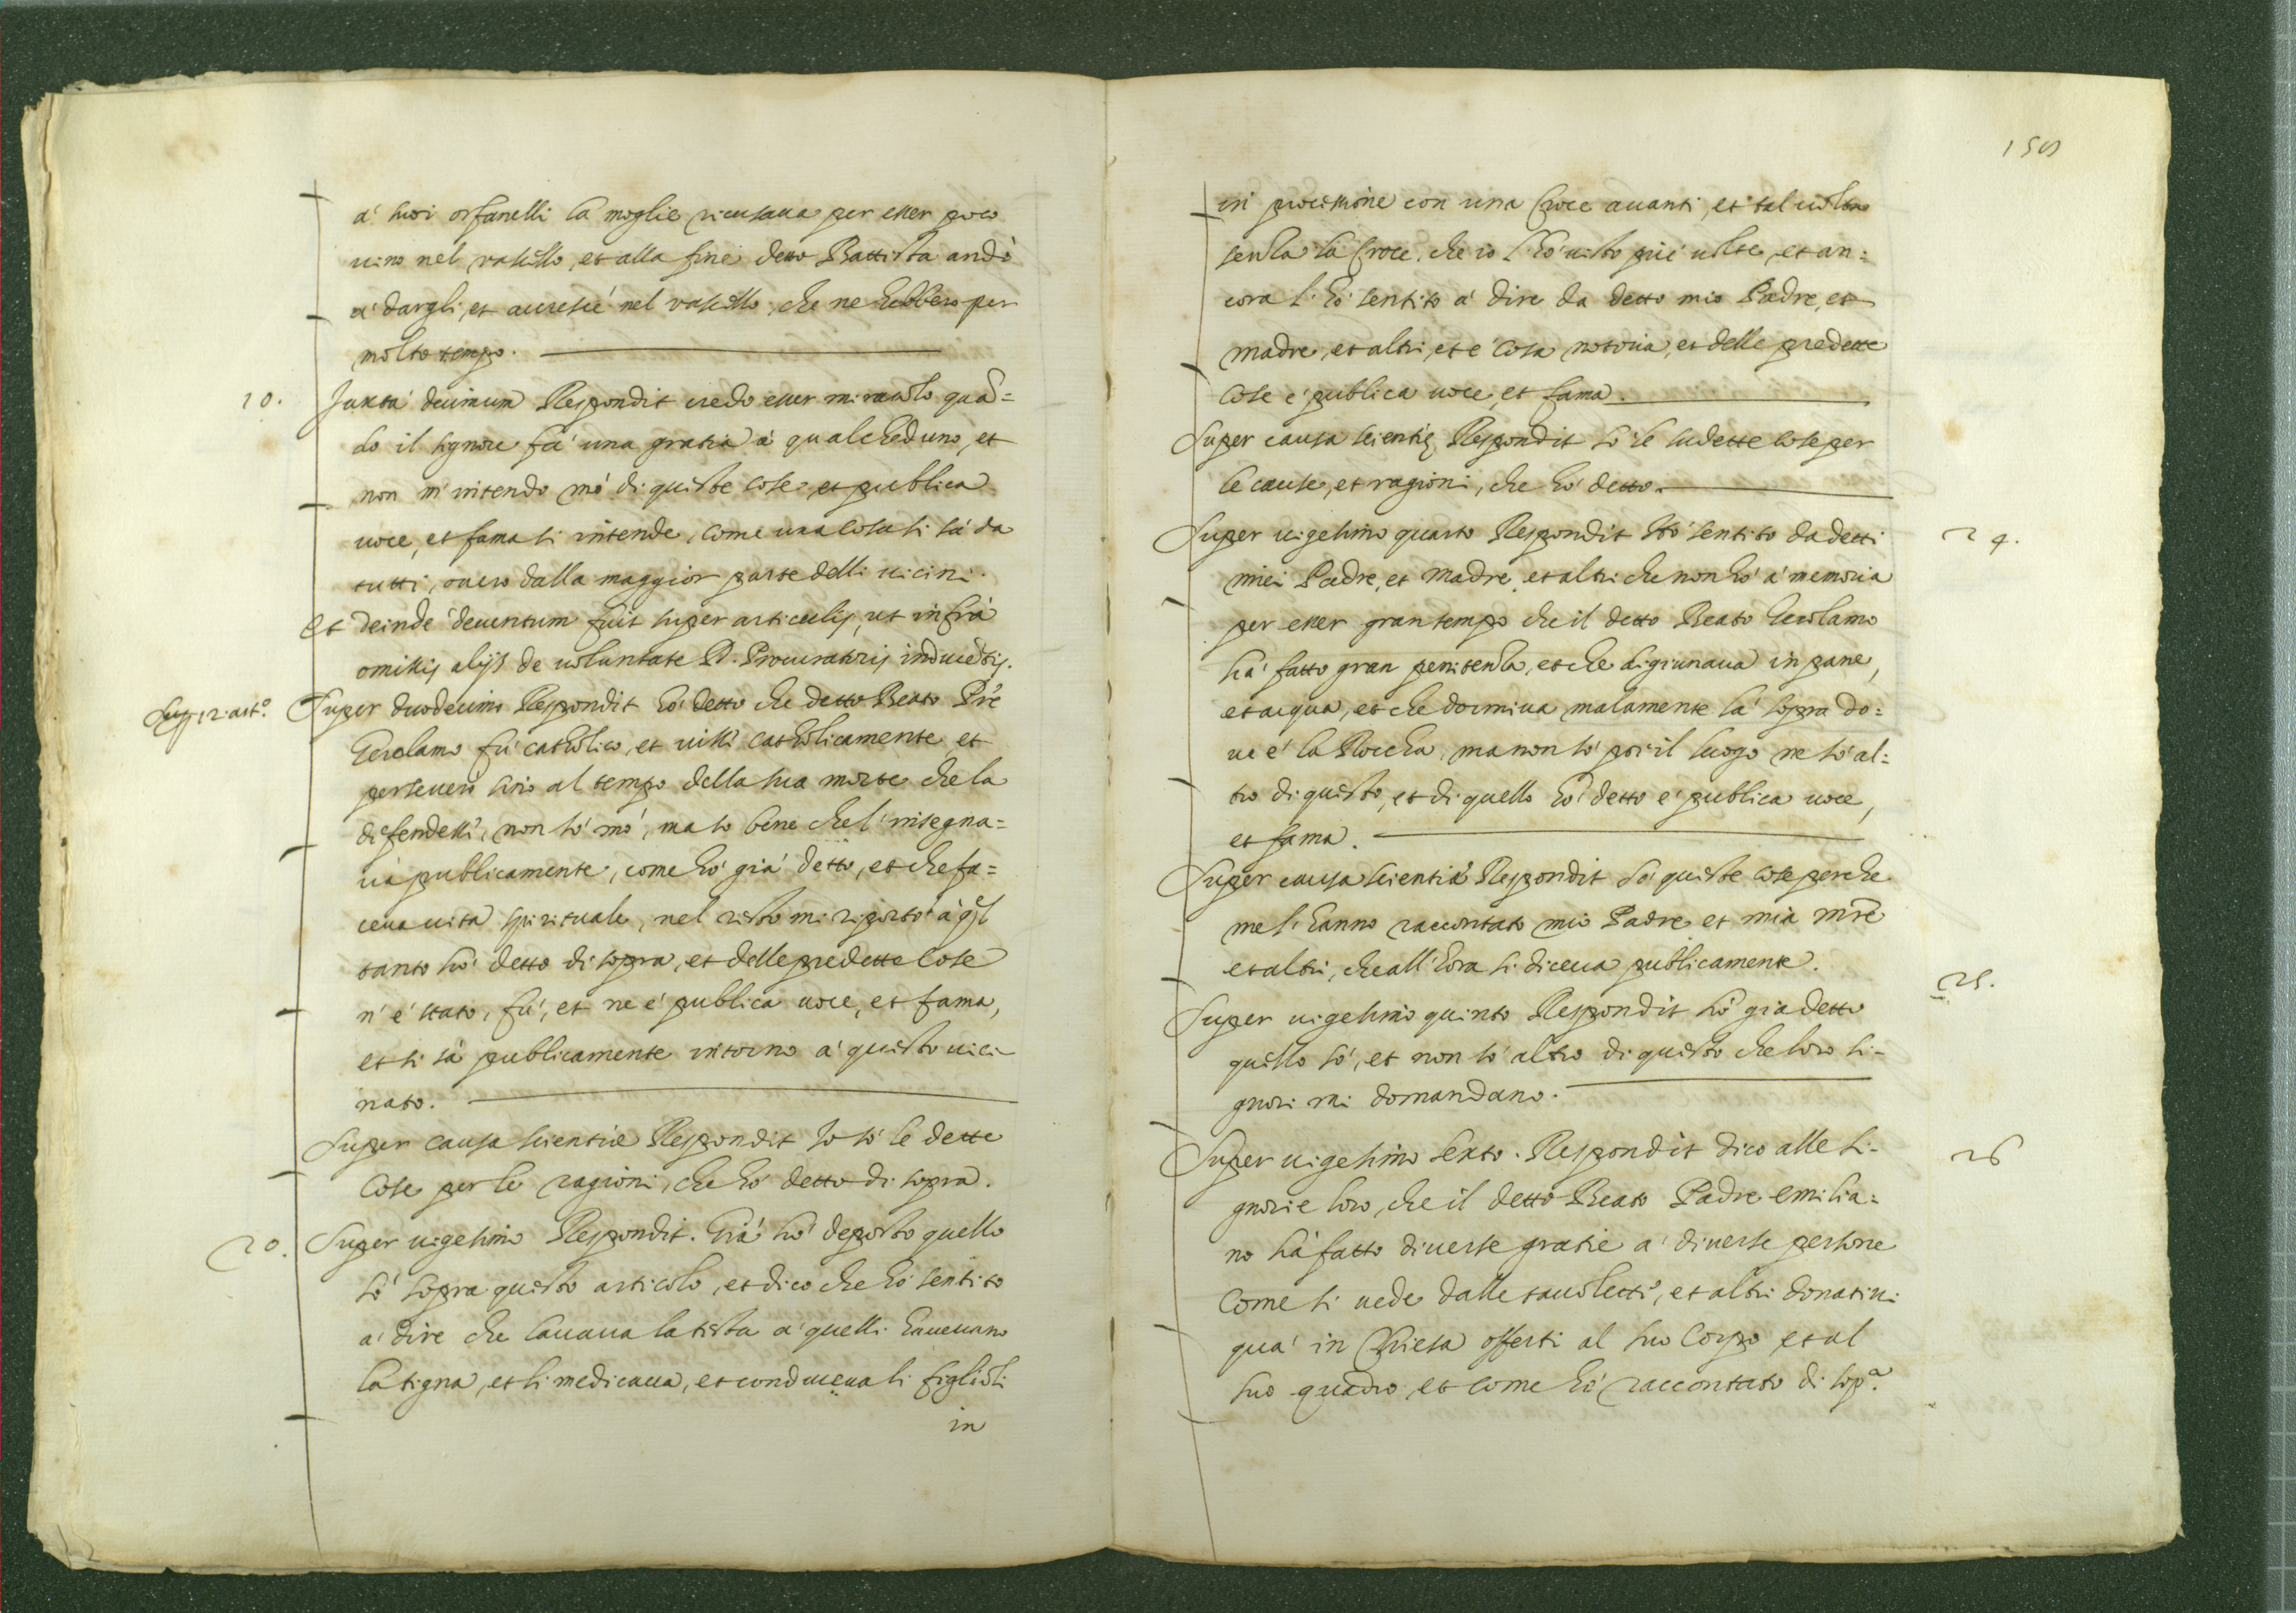 à suoi orfanelli la moglie ricusaua per esser poco
uino nel vasello, et alla fine detto Battista andò
à dargli, et accrescè nel vasello, che ne hebbero per
molto tempo.
10.
Juxta decimum Respondit credo esser miracolo quã=
do il signore fà una gratia à qualcheduno, et
non m'intendo mò di queste cose, et publica
uoce, et fama si intende, come una cosa si sà da
tutti, ouero dalla maggior parte delli uicini.
Et deinde deuentum fuit super articulis, ut infrà
omissis alijs de uoluntate D. Procuratoris inductis.
Sup. 12. art.º
Super duodecimo Respondit hò detto che detto Beato Prẽ
Gerolamo fù catholico, et uisse catholicamente et
perseuerò sino al tempo della sua morte che la
difendesse, non sò mò, ma so bene che l'insegna=
ua publicamente, come hò già detto, et che fa=
ceua uita spirituale, nel resto mi riporto à q̃l
tanto hò detto di sopra, et delle predette cose
n'è stato, fù, et ne è publica uoce, et fama,
et si sà publicamente intorno à questo uici-
nato.
Super causa scientiæ Respondit Io sò le dette
cose per le ragioni, che hò detto di sopra.
20.
Super uigesimo Respondit. Già hò deposto quello
sò sopra questo articolo, et dico che hò sentito
à dire che lauaua la testa à quelli haueuano
la tigna, et li medicaua, et conduceua li figlioli
in
159
in processione con una Croce auanti, et tal uolta
senza la Croce, che io l'hò uisto piè uolte, et an=
cora l'hò sentito à dire da detto mio Padre, et
madre, et altri, et è cosa notoria, et delle predette
cose è publica uoce, et fama.
Super causa scientię Respondit sò le sudette cose per
le cause, et ragioni, che hò detto.
24.
Super uigesimo quarto Respondit Hò sentito da detti
miei Padre, et Madre, et altri che non hò à memoria
per esser gran tempo che il detto Beato Gerolamo
hà fatto gran penitenza, et che digiunaua in pane,
et acqua, et che dormiua malamente là sopra do=
ue è la Roccha, ma non sò poi il luogo ne sò al=
tro di questo, et di quello hò detto è publica uoce,
et fama.
Super causa scientiæ Respondit Sò queste cose perche
me l'hanno raccontato mio Padre et mia mrẽ
et altri, che all'hora si diceua publicamente.
25.
Super uigesimo quinto Respondit hò già detto
quello sò, et non sò altro di questo che loro si-
gnori mi domandano.
26
Super uigesimo sexto. Respondit dico alle si-
gnorie loro, che il detto Beato Padre emilia=
no hà fatto diuerse gratie à diuerse persone
come si uede dalle tauolette, et altri donatiui
quà in Chiesa offerti al suo Corpo et al
suo quadro, et come hò raccontato di sopª.